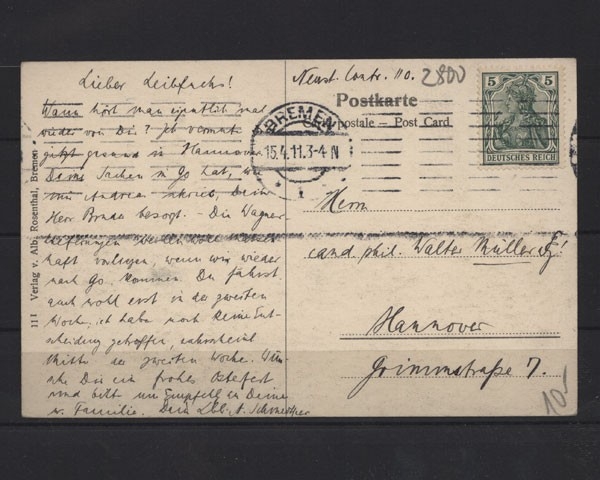 Lieber Leibfuchs!
Wann hört man eigentlich mal
wieder von Dir? Ich
jetzt gesund in Hannover
Deine Sachen in Go hat, wie
mir Andreae schrieb, Dein
Herr Bruder besorgt. - Die Wagner
haft vorliegen, wenn wir wieder
nach Go. kommen. Du fährst
auch wohl erst in der zweiten
Woche, ich habe noch keine Ent-
scheidung getroffen, wahrscheinl
Mitte der zweiten Woche. Wün-
sche Dir ein frohes Osterfest
und bitte um Empfehl an Deine
w. Familie. Dein Lbb. A.
111 Verlag v. Alb. Rosenthal, Bremen
Neust. Contr. 110.
2800
Postkarte
postale – Post Card
BREMEN
15.4.11.3-4 N
5 5
DEUTSCHES REICH
Herrn
cand. phil. Walter Müller
Hannover
Grimmstraße 7.
10-